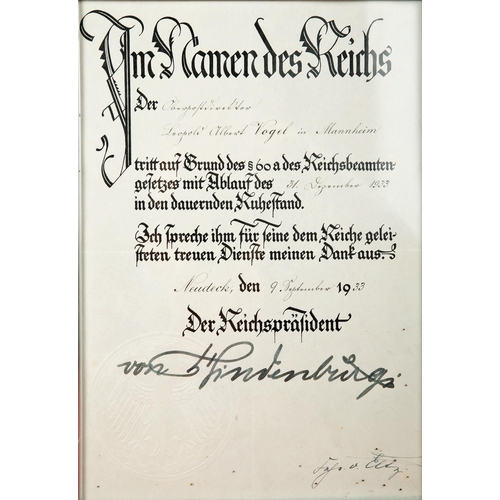 Im Namen des Reichs
Der Oberpostdirektor
Leopold Albert Vogel in Mannheim
tritt auf Grund des § 60 a des Reichsbeamten-
gesetzes mit Ablauf des 31. Dezember 1933
in den dauernden Ruhestand.
Ich spreche ihm für seine dem Reiche gelei-
steten treuen Dienste meinen Dank aus.
Neudeck, den 9. September 1933
Der Reichspräsident
von Hindenburg
Frhr. v. Eltz